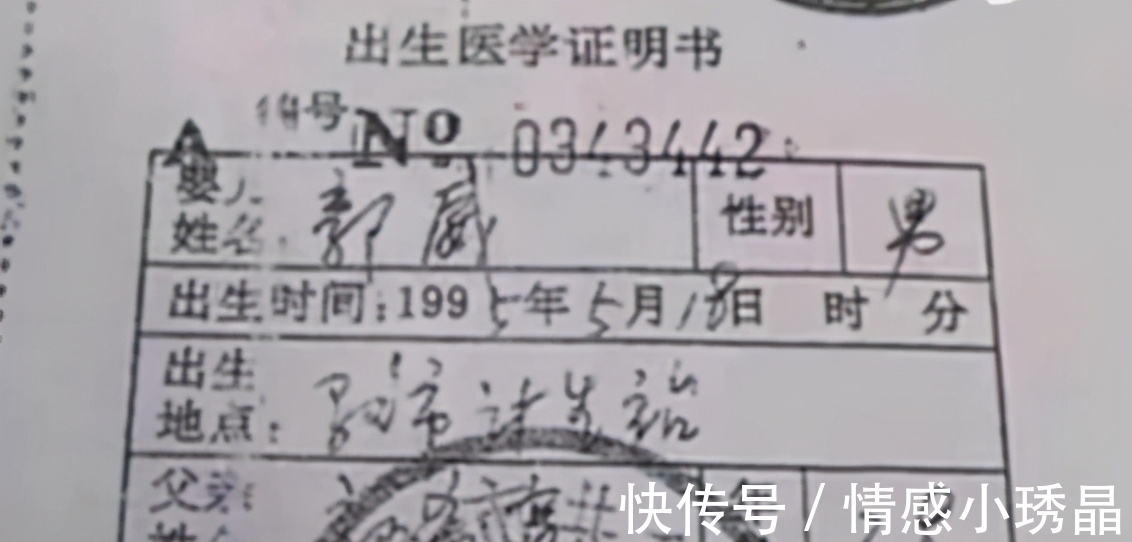 出生医学证明书
编号 No 0343442
婴儿姓名: 郭威 性别 男
出生时间:1995年5月18日 时 分
出生地点: 计生站
父亲
快传号/情感小琇晶